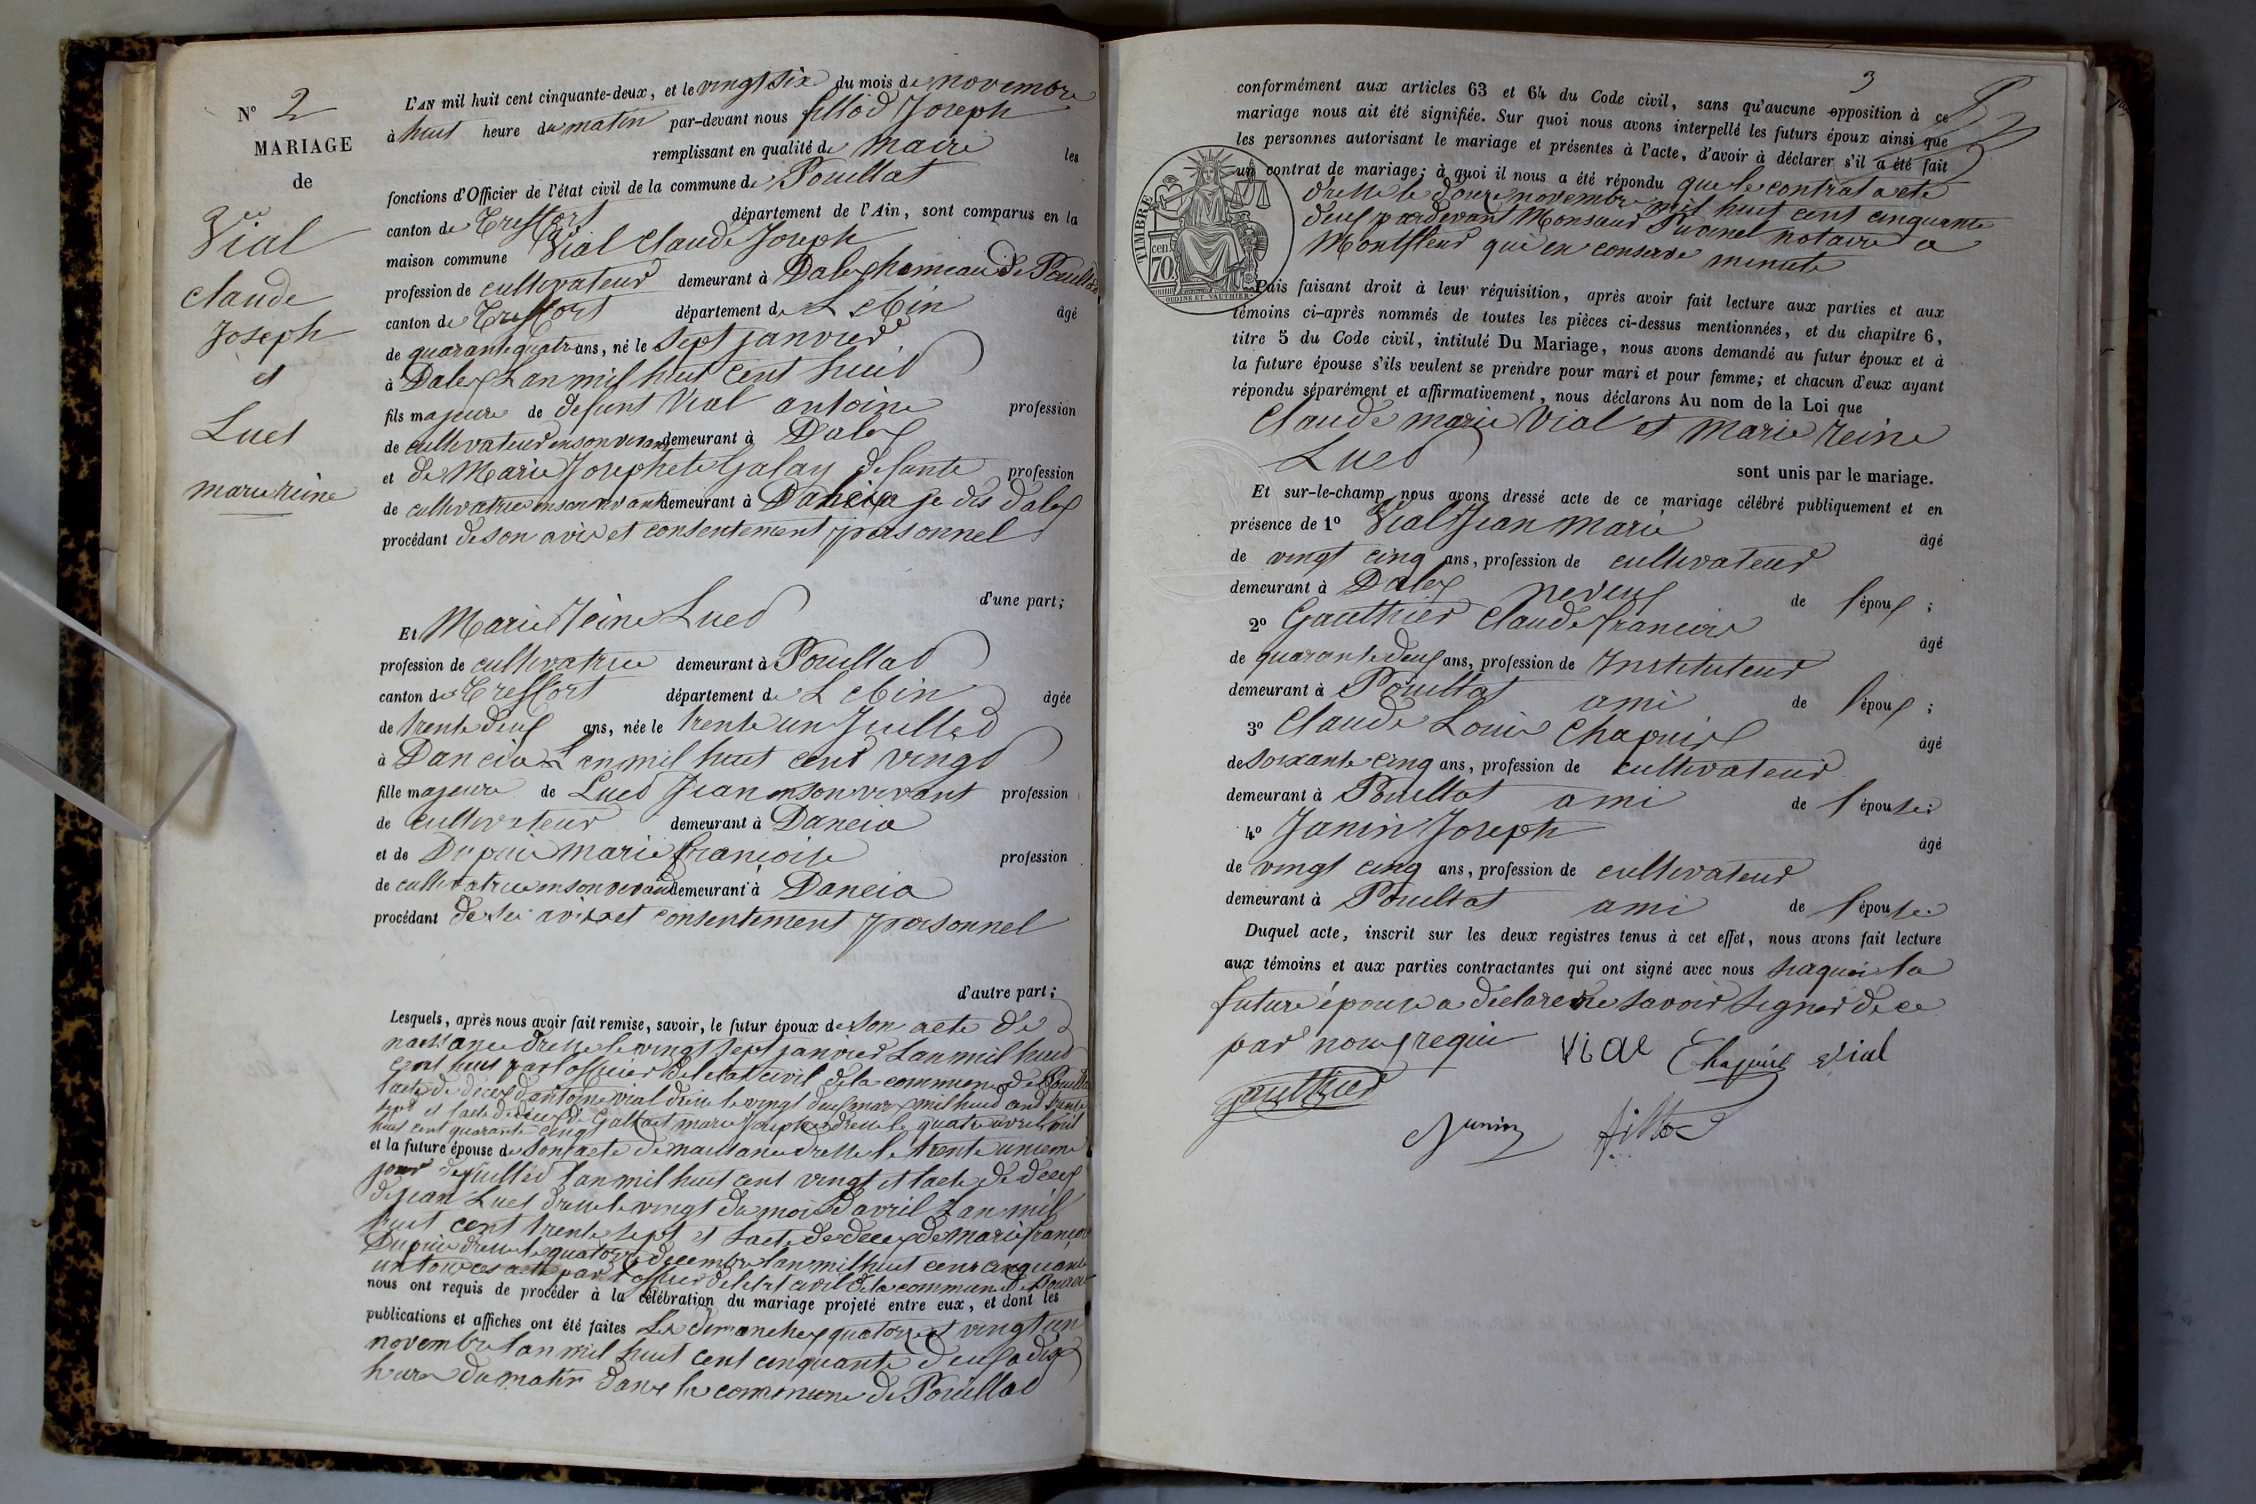 N° 2
MARIAGE
de
Vial
Claude
Joseph
et
Luet
marie reine
L'AN mil huit cent cinquante-deux, et le vingt six du mois de novembre
à huit heure du matin par-devant nous fillod Joseph
remplissant en qualité de Maire les
fonctions d'Officier de l'état civil de la commune de Pouillat
canton de Treffort département de l'Ain, sont comparus en la
maison commune Vial Claude Joseph
profession de cultivateur demeurant à Dalex hameau de Pouillat
canton de Treffort département de L Ain âgé
de quarante quatre ans, né le sept janvier
à Dalex Lan mil huit cent huit
fils majeure de defunt Vial antoine profession
de cultivateur en son vivant demeurant à Dalex
et de Marie Josephete Galay defunte profession
de cultivatrice en son vivant demeurant à Dancia je dis Dalex
procédant de son avis et consentement personnel
d'une part;
Et Marie Reine Lued
profession de cultivatrice demeurant à Pouillad
canton de Treffort département de L Ain âgée
de trente deux ans, née le trente un Juilled
à Dancia Lan mil huit cent vingt
fille majeure de Lued Jean en son vivant profession
de cultivateur demeurant à Dancia
et de Dupuis marie françoise profession
de cultivatrice en son vivant demeurant à Dancia
procédant de son avis et consentement personnel
d'autre part;
Lesquels, après nous avoir fait remise, savoir, le futur époux de son acte de
naissance dressé le vingt sept janvier Lan mil huit
cent huit par l'officier de letat civil de la commune de Pouillat
lacte de décès d'antoine vial dressé le vingt deux mars mil huit cent trente
sept et lacte de décès de marie Josephte dressé le quatre avril mil
huit cent quarante cinq
et la future épouse de son acte de naissance dressé le trente unieme
jour de juilled lan mil huit cent vingt et lacte de décès
de jean Luet dressé le vingt du mois d'avril Lan mil
huit cent trente sept et Lacte de deces de marie françoise
Dupuis dressé le quatorze décembre lan mil huit cent cinquante
un tous ces acte par l'officier de letat civil de la commune de
nous ont requis de procéder à la célébration du mariage projeté entre eux, et dont les
publications et affiches ont été faites Les dimanches quatorze et vingt un
novembre lan mil huit cent cinquante deux a dix
heure du matin dans la commune de Pouillad
3
conformément aux articles 63 et 64 du Code civil, sans qu'aucune opposition à ce
mariage nous ait été signifiée. Sur quoi nous avons interpellé les futurs époux ainsi que
les personnes autorisant le mariage et présentes à l'acte, d'avoir à déclarer s'il a été fait
un contrat de mariage; à quoi il nous a été répondu que le contrat a été
dressé le douze novembre mil huit cent cinquante
deux pardevant Monsieur notaire a
Montfleur qui en conserve minute
TIMBRE
70 cen.
OUDINE ET VAUTHIER
Puis faisant droit à leur réquisition, après avoir fait lecture aux parties et aux
témoins ci-après nommés de toutes les pièces ci-dessus mentionnées, et du chapitre 6,
titre 5 du Code civil, intitulé Du Mariage, nous avons demandé au futur époux et à
la future épouse s'ils veulent se prendre pour mari et pour femme; et chacun d'eux ayant
répondu séparément et affirmativement, nous déclarons Au nom de la Loi que
Claude marie Vial et Marie reine
Lued
sont unis par le mariage.
Et sur-le-champ nous avons dressé acte de ce mariage célébré publiquement et en
présence de 1° Vial Jean marie âgé
de vingt cinq ans, profession de cultivateur
demeurant à Dalex neveux de l'époux ;
2° Gauthier Claude françois âgé
de quarante deux ans, profession de Instituteur
demeurant à Pouillat ami de l'époux ;
3° Claude Louis Chapuis âgé
de soixante cinq ans, profession de cultivateur
demeurant à Pouillat ami de l'épouse
4° Janin Joseph âgé
de vingt cinq ans, profession de cultivateur
demeurant à Pouillat ami de l'épouse
Duquel acte, inscrit sur les deux registres tenus à cet effet, nous avons fait lecture
aux témoins et aux parties contractantes qui ont signé avec nous la
future épouse a déclaré ne savoir signer de ce
par nous requis Vial Chapuis Vial
gauthier
Junin fillod